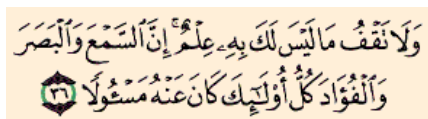 وَلَا تَقْفُ مَا لَيْسَ لَكَ بِهِۦ عِلْمٌ ۚ إِنَّ ٱلسَّمْعَ وَٱلْبَصَرَ
وَٱلْفُؤَادَ كُلُّ أُو۟لَٰٓئِكَ كَانَ عَنْهُ مَسْـُٔولًا ٣٦